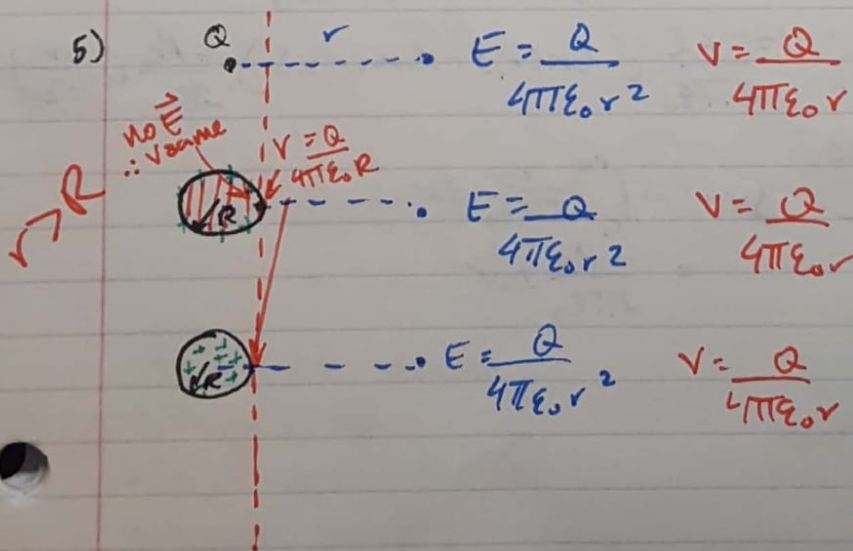 5) Q r E = Q/4πε₀r² V = Q/4πε₀r
no E⃗
∴ V same
V = Q/4πε₀R
r > R
R E = Q/4πε₀r² V = Q/4πε₀r
+ + + + + + +
R E = Q/4πε₀r² V = Q/4πε₀r